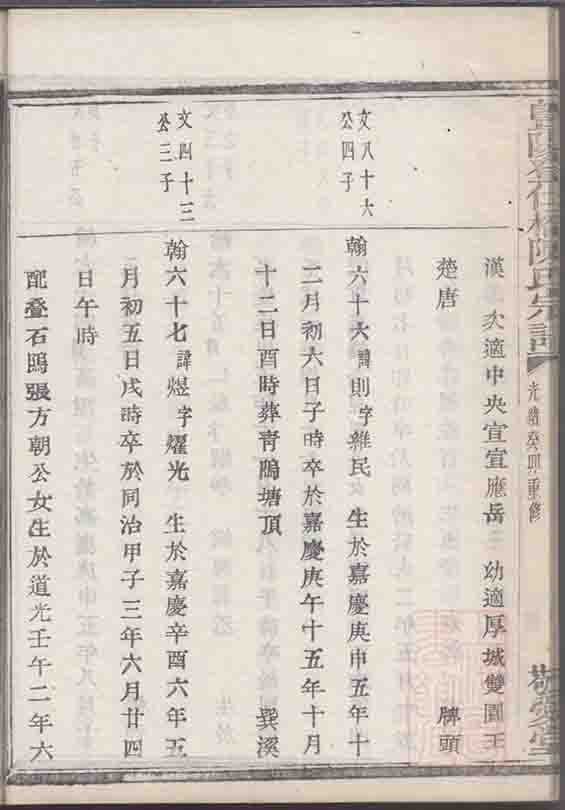 陳氏宗譜
光緒癸卯重修
敬愛堂
漢 次適中央宣宣應岳 幼適厚城雙園王
楚唐 脾頭
文八十六
公四子
翰六十六諱則字雒民 生於嘉慶庚申五年十
二月初六日子時卒於嘉慶庚午十五年十月
十二日酉時葬青鴟塘頂 巽溪
文四十三
公三子
翰六十七諱煜字耀光 生於嘉慶辛酉六年五
月初五日戌時卒於同治甲子三年六月廿四
日午時
配疊石鴟張方朝公女生於道光壬午二年六